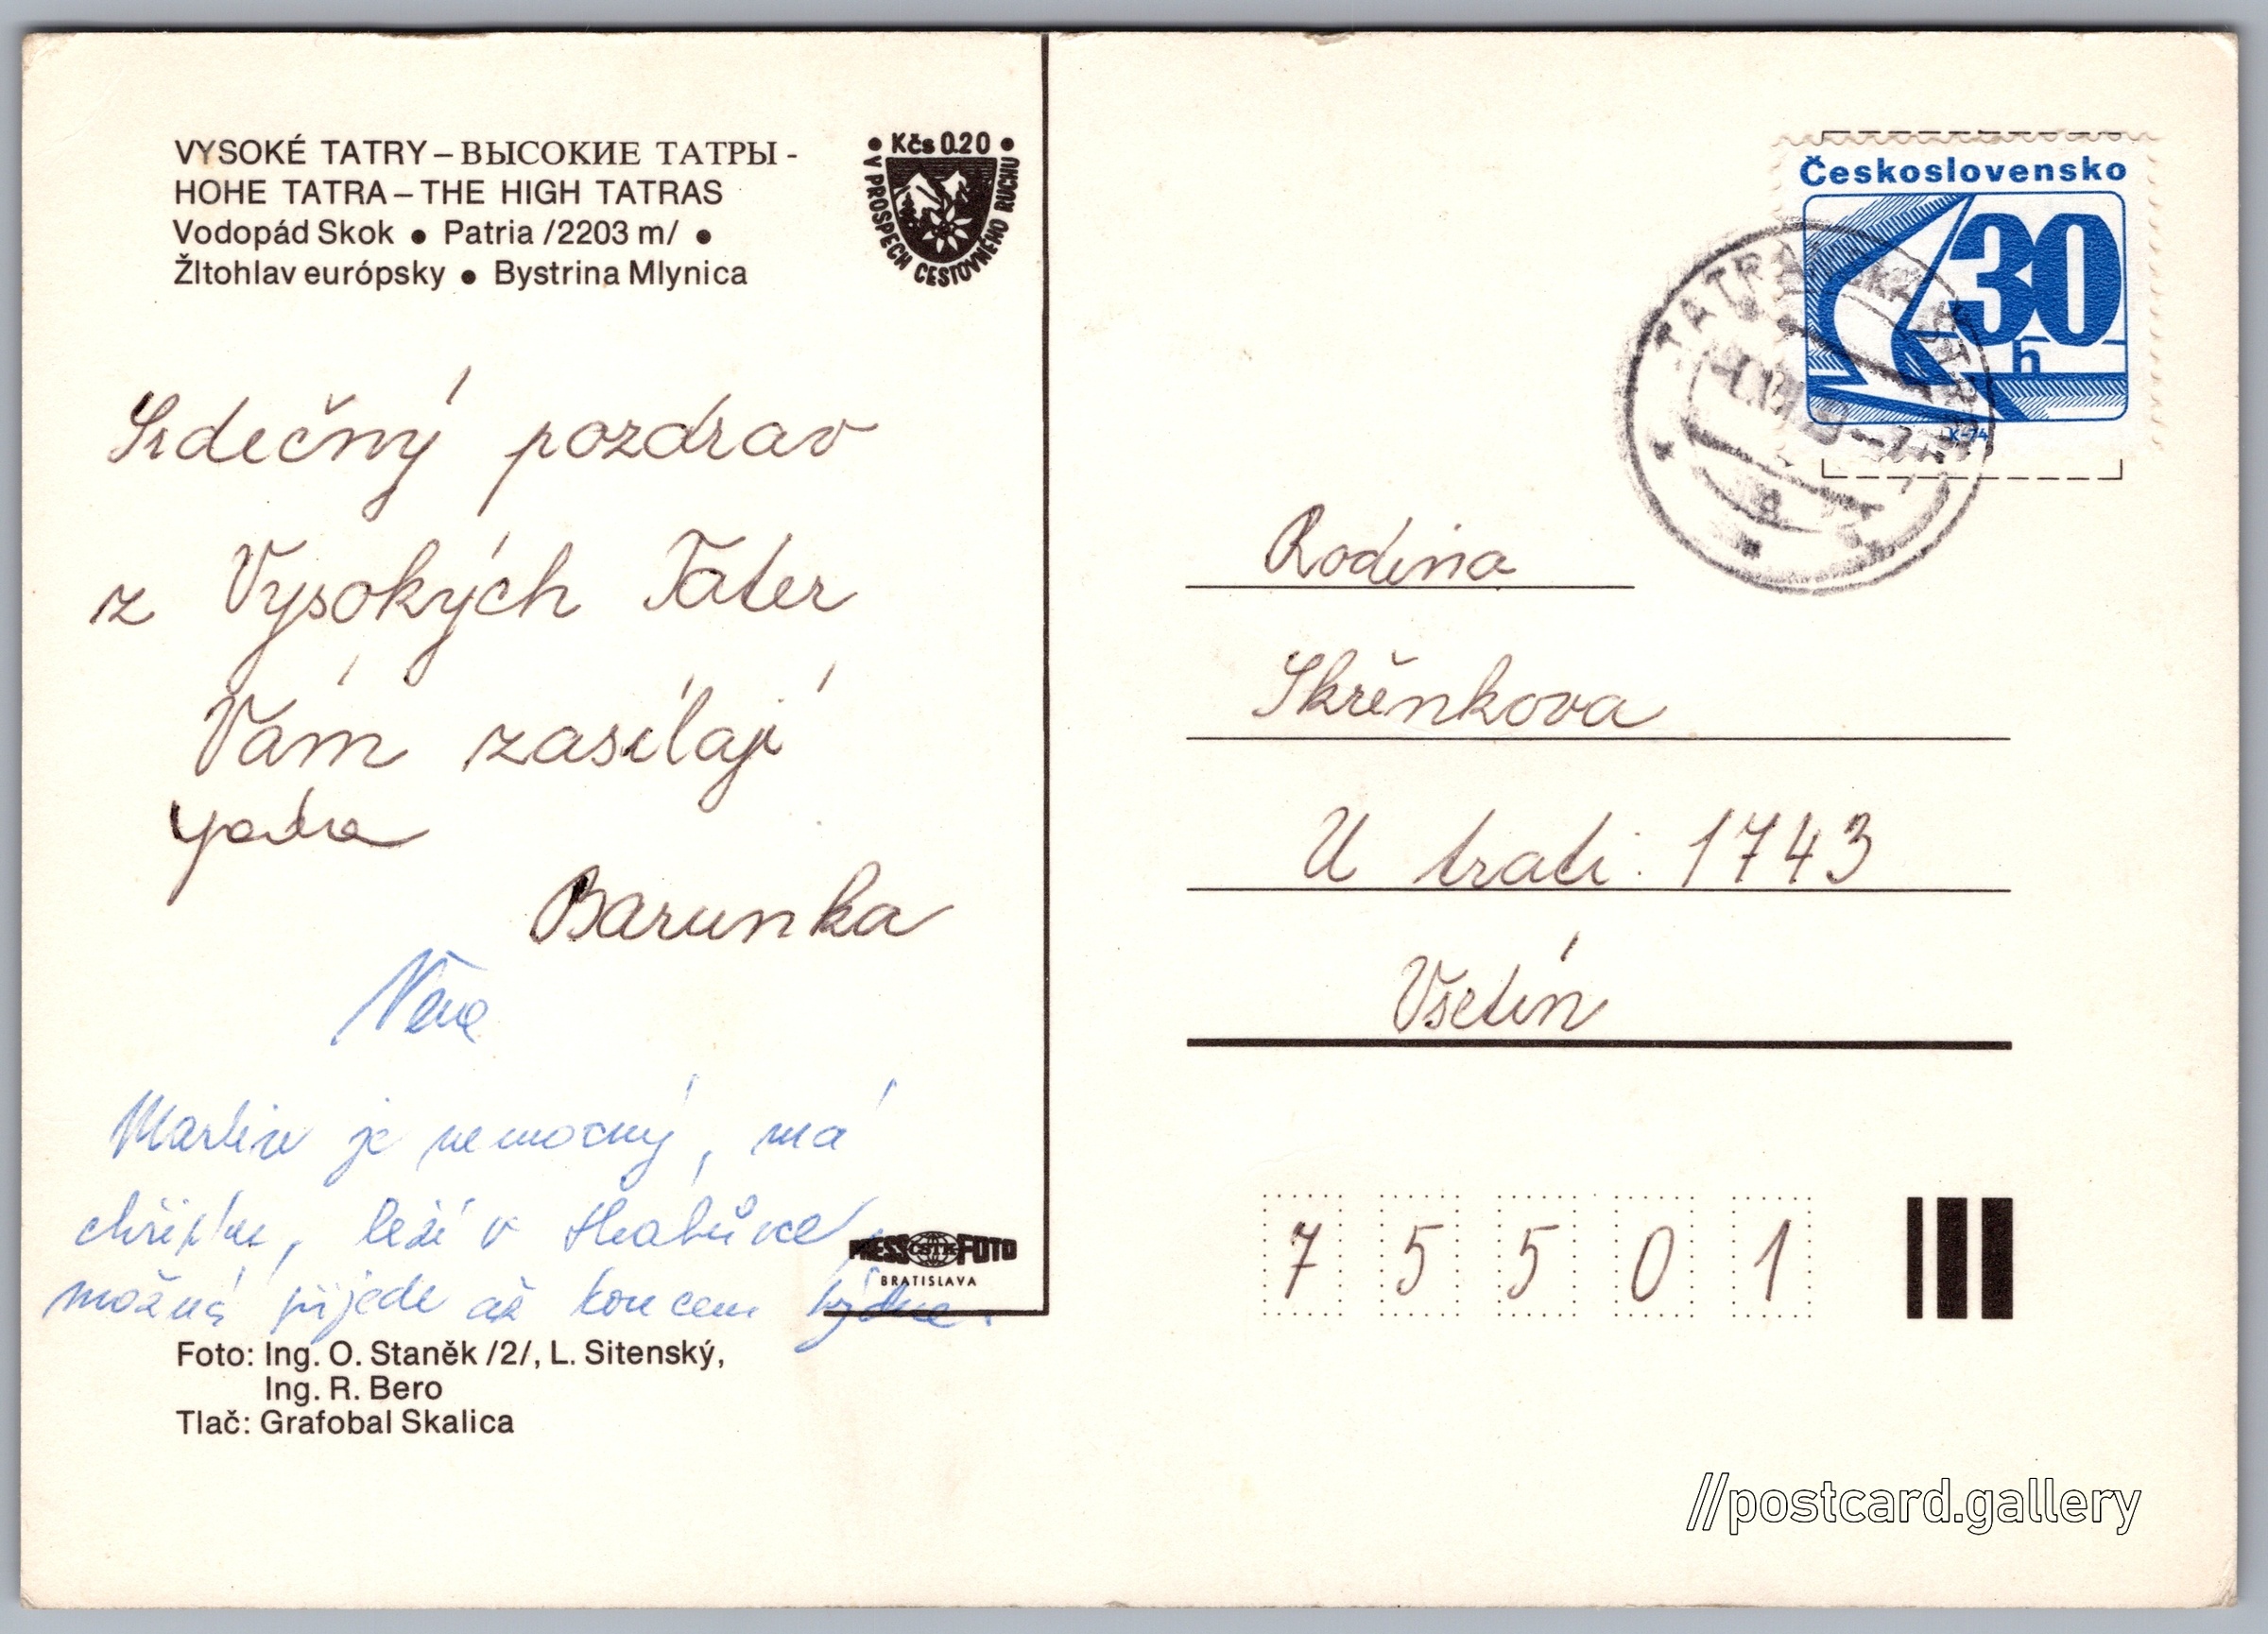 VYSOKÉ TATRY – ВЫСОКИЕ ТАТРЫ -
HOHE TATRA – THE HIGH TATRAS
Vodopád Skok ● Patria /2203 m/ ●
Žltohlav európsky ● Bystrina Mlynica
• Kčs 0.20 •
V PROSPECH CESTOVNÉHO RUCHU
Srdečný pozdrav
z Vysokých Tater
Vám zasílají
Barunka
Věra
Martin je nemocný, má
chřipku, leží v Hrabůvce,
možná přijede až koncem týdne.
PRESS ČSTK FOTO
BRATISLAVA
Foto: Ing. O. Staněk /2/, L. Sitenský,
Ing. R. Bero
Tlač: Grafobal Skalica
Československo
30
h
K-74
TATRANSKÁ
Rodina
Skřěnkova
U trati 1743
Vsetín
7 5 5 0 1
//postcard.gallery